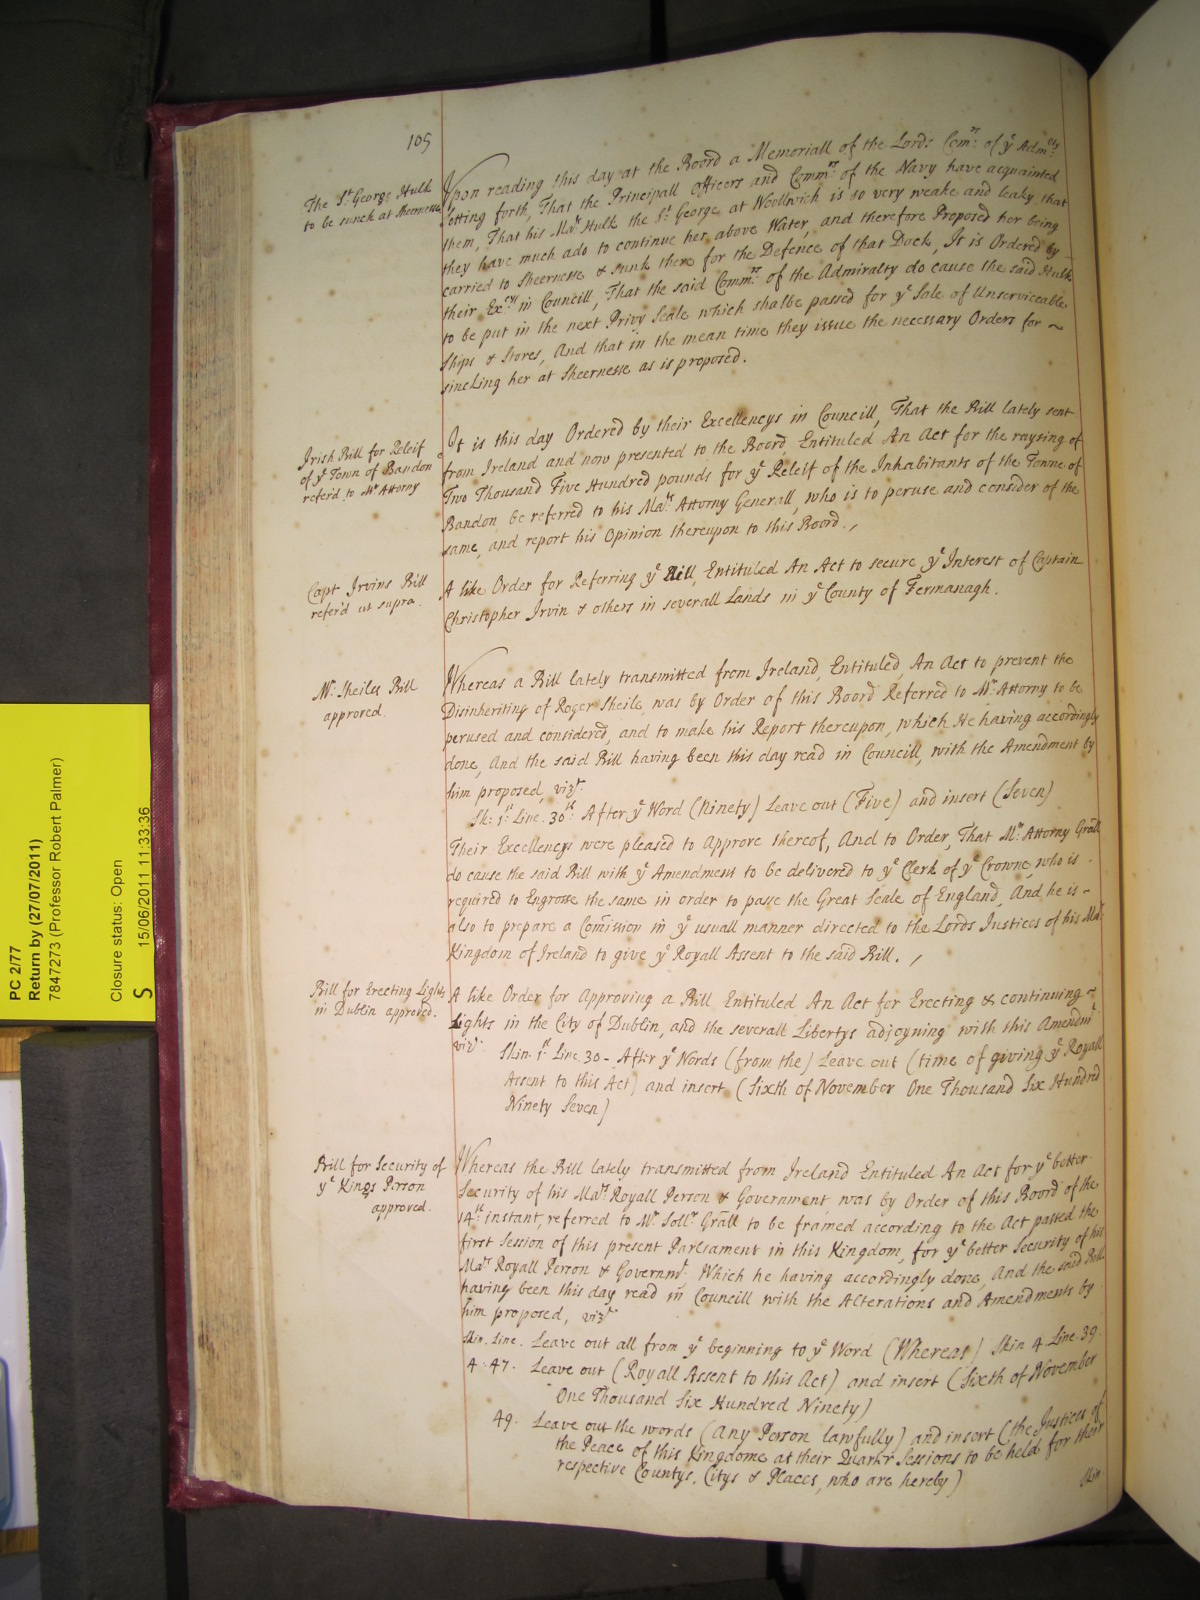 105
The St George Hulk
to be sunck at Sheernesse
Upon reading this day at the Board a Memoriall of the Lords Comrs of ye Admlty
setting forth, That the Principall Officers and Commrs of the Navy have acquainted
them, That his Mats Hulk the St George at Woollwich is so very weake and leaky that
they have much ado to continue her above Water, and therefore Proposed her being
carried to Sheernesse & sunk there for the Defence of that Dock, It is Ordered by
their Excys in Councill, That the said Commrs of the Admiralty do cause the said Hulk
to be put in the next Privy Seale which shalbe passed for ye Sale of Unserviceable
Ships & Stores, And that in the mean time they issue the necessary Orders for ~
sincking her at Sheernesse as is proposed.
Irish Bill for Releif
of ye Town of Bandon
referd to Mr Attorny
It is this day Ordered by their Excellencys in Councill, That the Bill lately sent
from Ireland and now presented to the Board, Entituled An Act for the raysing of
Two Thousand Five Hundred pounds for ye Releif of the Inhabitants of the Towne of
Bandon be referred to his Mats Attorny Generall, who is to peruse and consider of the
same, and report his Opinion thereupon to this Board.,
Capt Irvins Bill
referd ut supra.
A like Order for Referring ye Bill, Entituled An Act to secure ye Interest of Captain
Christopher Irvin & others in severall Lands in ye County of Fermanagh.
Mr Sheiles Bill
approved.
Whereas a Bill lately transmitted from Ireland, Entituled, An Act to prevent the
Disinheriting of Roger Sheile, was by Order of this Board Referred to Mr Attorny to be
perused and considered, and to make his Report thereupon, which He having accordingly
done, And the said Bill having been this day read in Councill, with the Amendment by
him proposed, vizt.
Sk: 1st Line. 30th After ye Word (Ninety) Leave out (Five) and insert (Seven)
Their Excellencys were pleased to Approve thereof, And to Order, That Mr Attorny Grall
do cause the said Bill with ye Amendment to be delivered to ye Clerk of ye Crowne, who is
required to Engrosse the same in order to passe the Great Seale of England, And he is -
also to prepare a Comission in ye usuall manner directed to the Lords Justices of his Mats
Kingdom of Ireland to give ye Royall Assent to the said Bill.,
Bill for Erecting Lights
in Dublin approved.
A like Order for Approving a Bill, Entituled An Act for Erecting & continuing ~
Lights in the City of Dublin, and the severall Libertys adjoyning with this Amendmt
vizt.
Skin. 1st Line. 30 - After ye Words (from the) Leave out (time of giving ye Royall
Assent to this Act) and insert (Sixth of November One Thousand Six Hundred
Ninety Seven)
Bill for Security of
ye Kings Person
approved.
Whereas the Bill lately transmitted from Ireland Entituled An Act for ye better
Security of his Mats Royall Person & Government, was by Order of this Board of the
14th instant, referred to Mr Sollr Grall to be framed according to the Act passed the
first Session of this present Parliament in this Kingdom, for ye better Security of his
Mats Royall Person & Governmt, Which he having accordingly done, And the said Bill
having been this day read in Councill with the Alterations and Amendments by
him proposed, vizt
Skin. Line. Leave out all from ye beginning to ye Word (Whereas) Skin 4 Line. 39.
4. 47. Leave out (Royall Assent to this Act) and insert (Sixth of November
One Thousand Six Hundred Ninety)
49. Leave out the words (Any Person lawfully) and insert (the Justices of
the Peace of this Kingdome at their Quartr Sessions to be held for their
respective Countys, Citys & Places, who are hereby)
Skin
PC 2/77
Return by (27/07/2011)
7847273 (Professor Robert Palmer)
Closure status: Open
S 15/06/2011 11:33:36